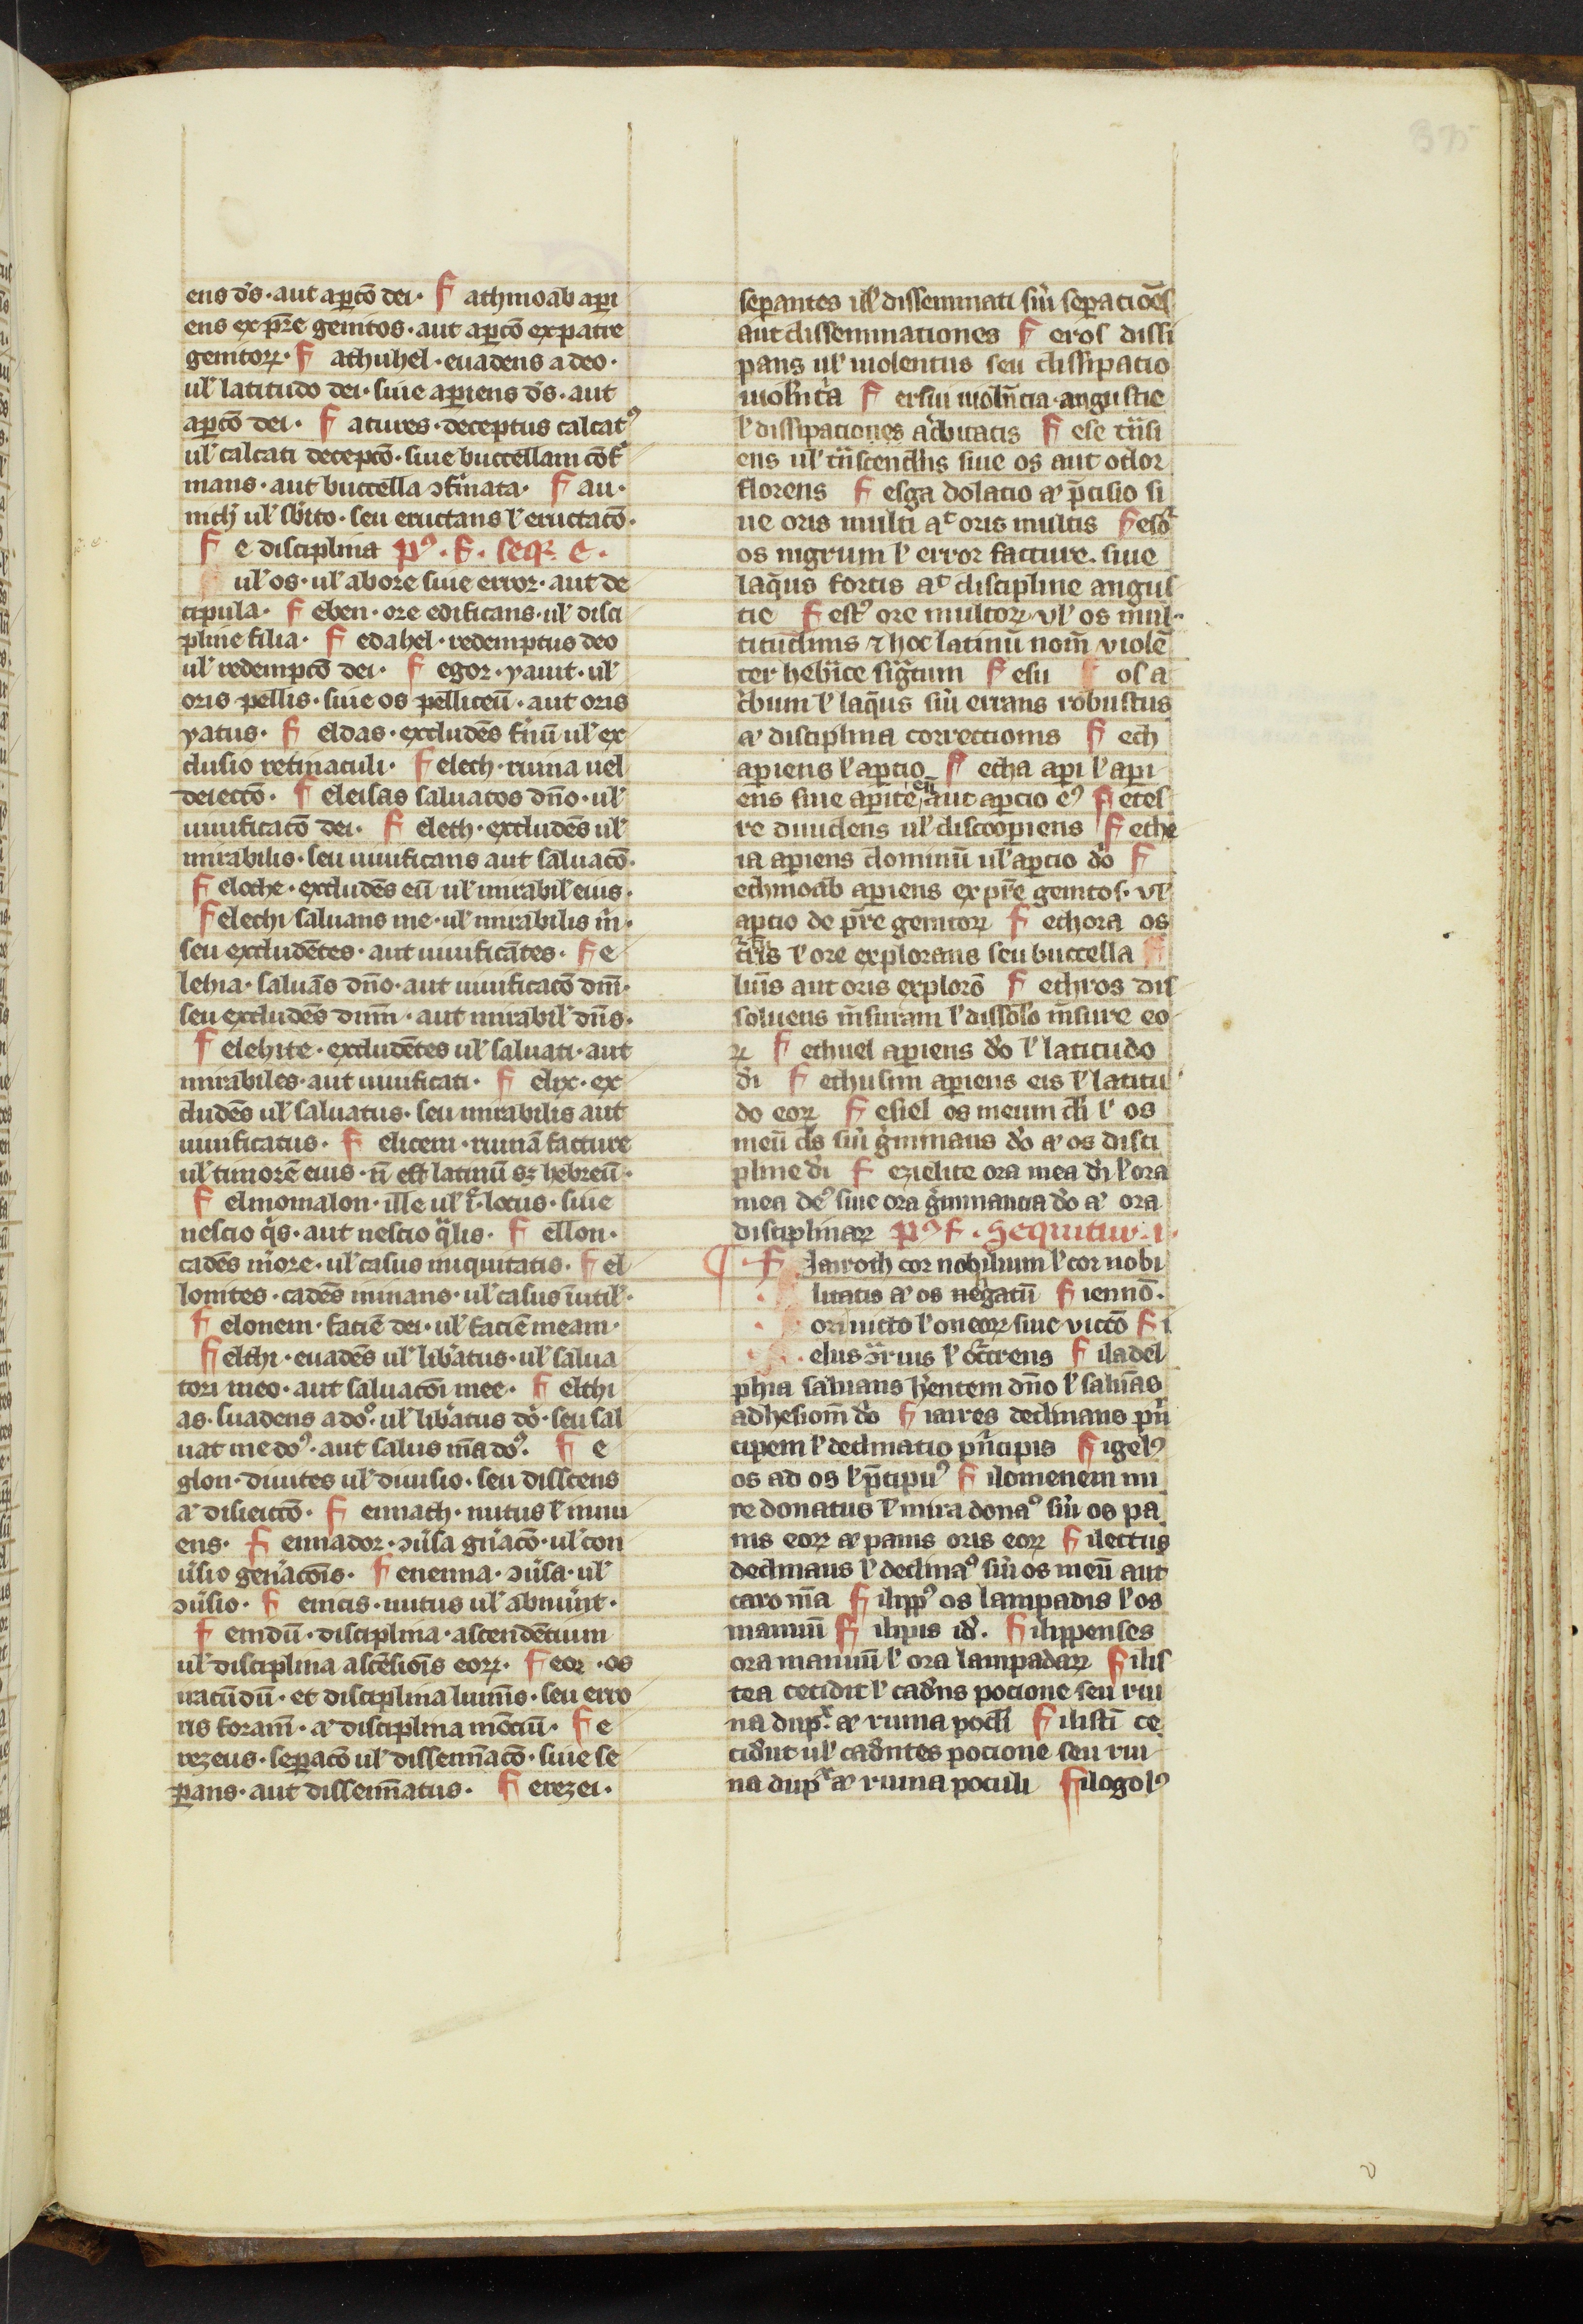 375
ens dſ̄·aut aꝑtō dei· F athmoab aꝑi
ens ex pr̄e genitos·aut aꝑtō ex patre
genitoꝝ· F athuhel·euadens a deo·
ul̛ latitudo dei·siue aꝑiens dſ̄·aut
aꝑtō dei· F atures·deceptus calcatꝰ
ul̛ calcati deceptō·siue buccellam ꝯfir
mans·aut buccella ꝯfirmata· F au·
nich̛ ul̛ sbito·seu eructans l̛ eructatō·
F e disciplina pꝰ· F· seqr̄ e·
ul̛ os·ul̛ abore siue error·aut de
cipula· F eben·ore edificans·ul̛ disci
pline filia· F edahel·redemptus deo
ul̛ redemptō dei· F egor·yauit·ul̛
oris pellis·siue os pelliceū·aut oris
yatus· F eldas·excludēs firmū ul̛ ex
clusio retinaculi· F elech·ruina uel
deiectō· F eleisas saluatos dn̄o·ul̛
uiuificatō dei· F eleth·excludēs ul̛
mirabilis·seu uiuificans aut saluatō·
F elethe·excludēs eū ul̛ mirabil̛ eius·
F elethi saluans me·ul̛ mirabilis m̄·
seu excludētes·aut uiuificātes· F e
lehia·saluās dn̄o·aut uiuificatō dn̄i·
seu excludēs dnm̄·aut mirabil̛ dn̄s·
F elehite·excludētes ul̛ saluati·aut
mirabiles·aut uiuificati· F elix·ex
cludēs ul̛ saluatus·seu mirabilis aut
uiuificatus· F elicem·ruinā facture
ul̛ timorē eius·n̄ est latinū sꝫ hebreū·
F elmomalon·ille ul̛ i·locus·siue
nescio q̄s·aut nescio q̄lis· F ellon·
cadēs more·ul̛ casus iniquitatis· F el
lonites·cadēs minans·ul̛ casus īutil̛·
F elonem·faciē dei·ul̛ faciē meam·
F elthi·euadēs ul̛ lib̄atus·ul̛ salua
tori meo·aut saluatōi mee· F elthi
as·suadens a dō·ul̛ lib̄atus dō·seu sal
uat me doꝰ·aut salus mā doꝰ· F e
glon·diuites ul̛ diuisio·seu discens
aͭ disiectō· F emath·nutus l̛ innu
ens· F emador·ꝯuersa gn̄atō·ul̛ con
uersio gen̄atōis· F enenna·ꝯuersa·ul̛
ꝯuersio· F encis·nutus ul̛ abnuunt·
F endū·disciplina·ascendētium
ul̛ disciplina ascēsiōis eoꝝ· F eor·os
iracūdū·et disciplina luminis·seu erro
ris foram̄·aͭ disciplina mōtiū· F e
rezeus·seꝑatō ul̛ dissemīatō·siue se
ꝑans·aut dissemīatus· F erezei·
seperantes ul̛ disseminati siue seperatiōes
aut disseminationes F eros dissi
pans ul̛ uiolentus seu dissipatio
uiolenta F ersiu uiolētia·angustie
l̛ dissipationes acerbitatis F ese trāsi
ens ul̛ trāscendens siue os aut odor
florens F esga dolatio aͭ p̄cisio si
ue oris multi aͭ oris multis F esor
os nigrum l̛ error facture·siue
laq̄us fortis aͭ discipline angus
tie F estꝰ ore multoꝝ·vl̛ os mul·
titudinis ⁊ hoc latinū nom̄ violē
ter hebraice figuratum F esu os a
cerbum l̛ laq̄us siue errans robustus
aͭ disciplina correctionis F eth
aꝑiens l̛ aꝑtio F etha aꝑi l̛ aꝑi
ens siue aꝑite eū aut aꝑtio eꝰ F etes
re diuidens ul̛ discooꝑiens F ethe
ia aꝑiens dominū ul̛ aꝑtio dō F
ethmoab aꝑiens ex pr̄e genitos·vl̛
aꝑtio de pr̄e genitoꝝ F ethora os
tris l̛ ore explorans seu buccella
luīs aut oris explorō F ethros dis
soluens m̄suram l̛ dissolō m̄sure eo
ꝝ F ethuel aꝑiens dō l̛ latitudo
dī F ethusim aꝑiens eis l̛ latitu
do eoꝝ F esiel os meum dī l̛ os
meū dſ̄ siue germinans dō aͭ os disci
pline dī F ezielite ora mea dī l̛ ora
mea deꝰ siue ora germinantia dō aͭ ora
disciplinaꝝ pꝰ F·Sequitur·i·
¶ F Iairoth cor nobilium l̛ cor nobi
litatis aͭ os negatū F iennō·
ori uicto l̛ oneoꝝ siue victō F i
elus ꝯtrarius l̛ occurrens F iladel
phia saluans herentem dn̄o l̛ saluās
adhesiom̄ dō F iaires declinans prin
cipem l̛ declinatio prīcipis F igelꝰ
os ad os l̛ p̄cipuꝰ F ilomenem mi
re donatus l̛ mira donaꝰ siue os pa
nis eoꝝ aͭ panis oris eoꝝ F ilectus
declinans l̛ declinaꝰ siue os meū aut
caro m̄a F ilippꝰ os lampadis l̛ os
manuū F ilipis id̄· F ilippenses
ora manuū l̛ ora lampadaꝝ F ilis
tea cecidit l̛ cadens pocione seu rui
na dup̄x aͭ ruina poculi F ilistī ce
ciderunt ul̛ cadentes pocione seu rui
na dup̄x aͭ ruina poculi F ilogolꝰ
v